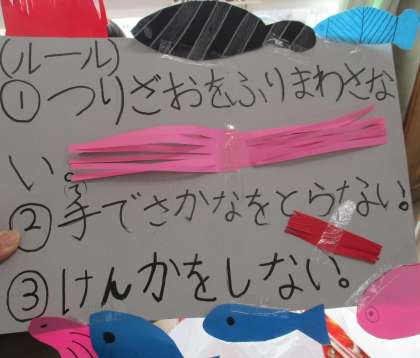 (ルール)
①つりざおをふりまわさな
い。
②手(て)でさかなをとらない。
③けんかをしない。